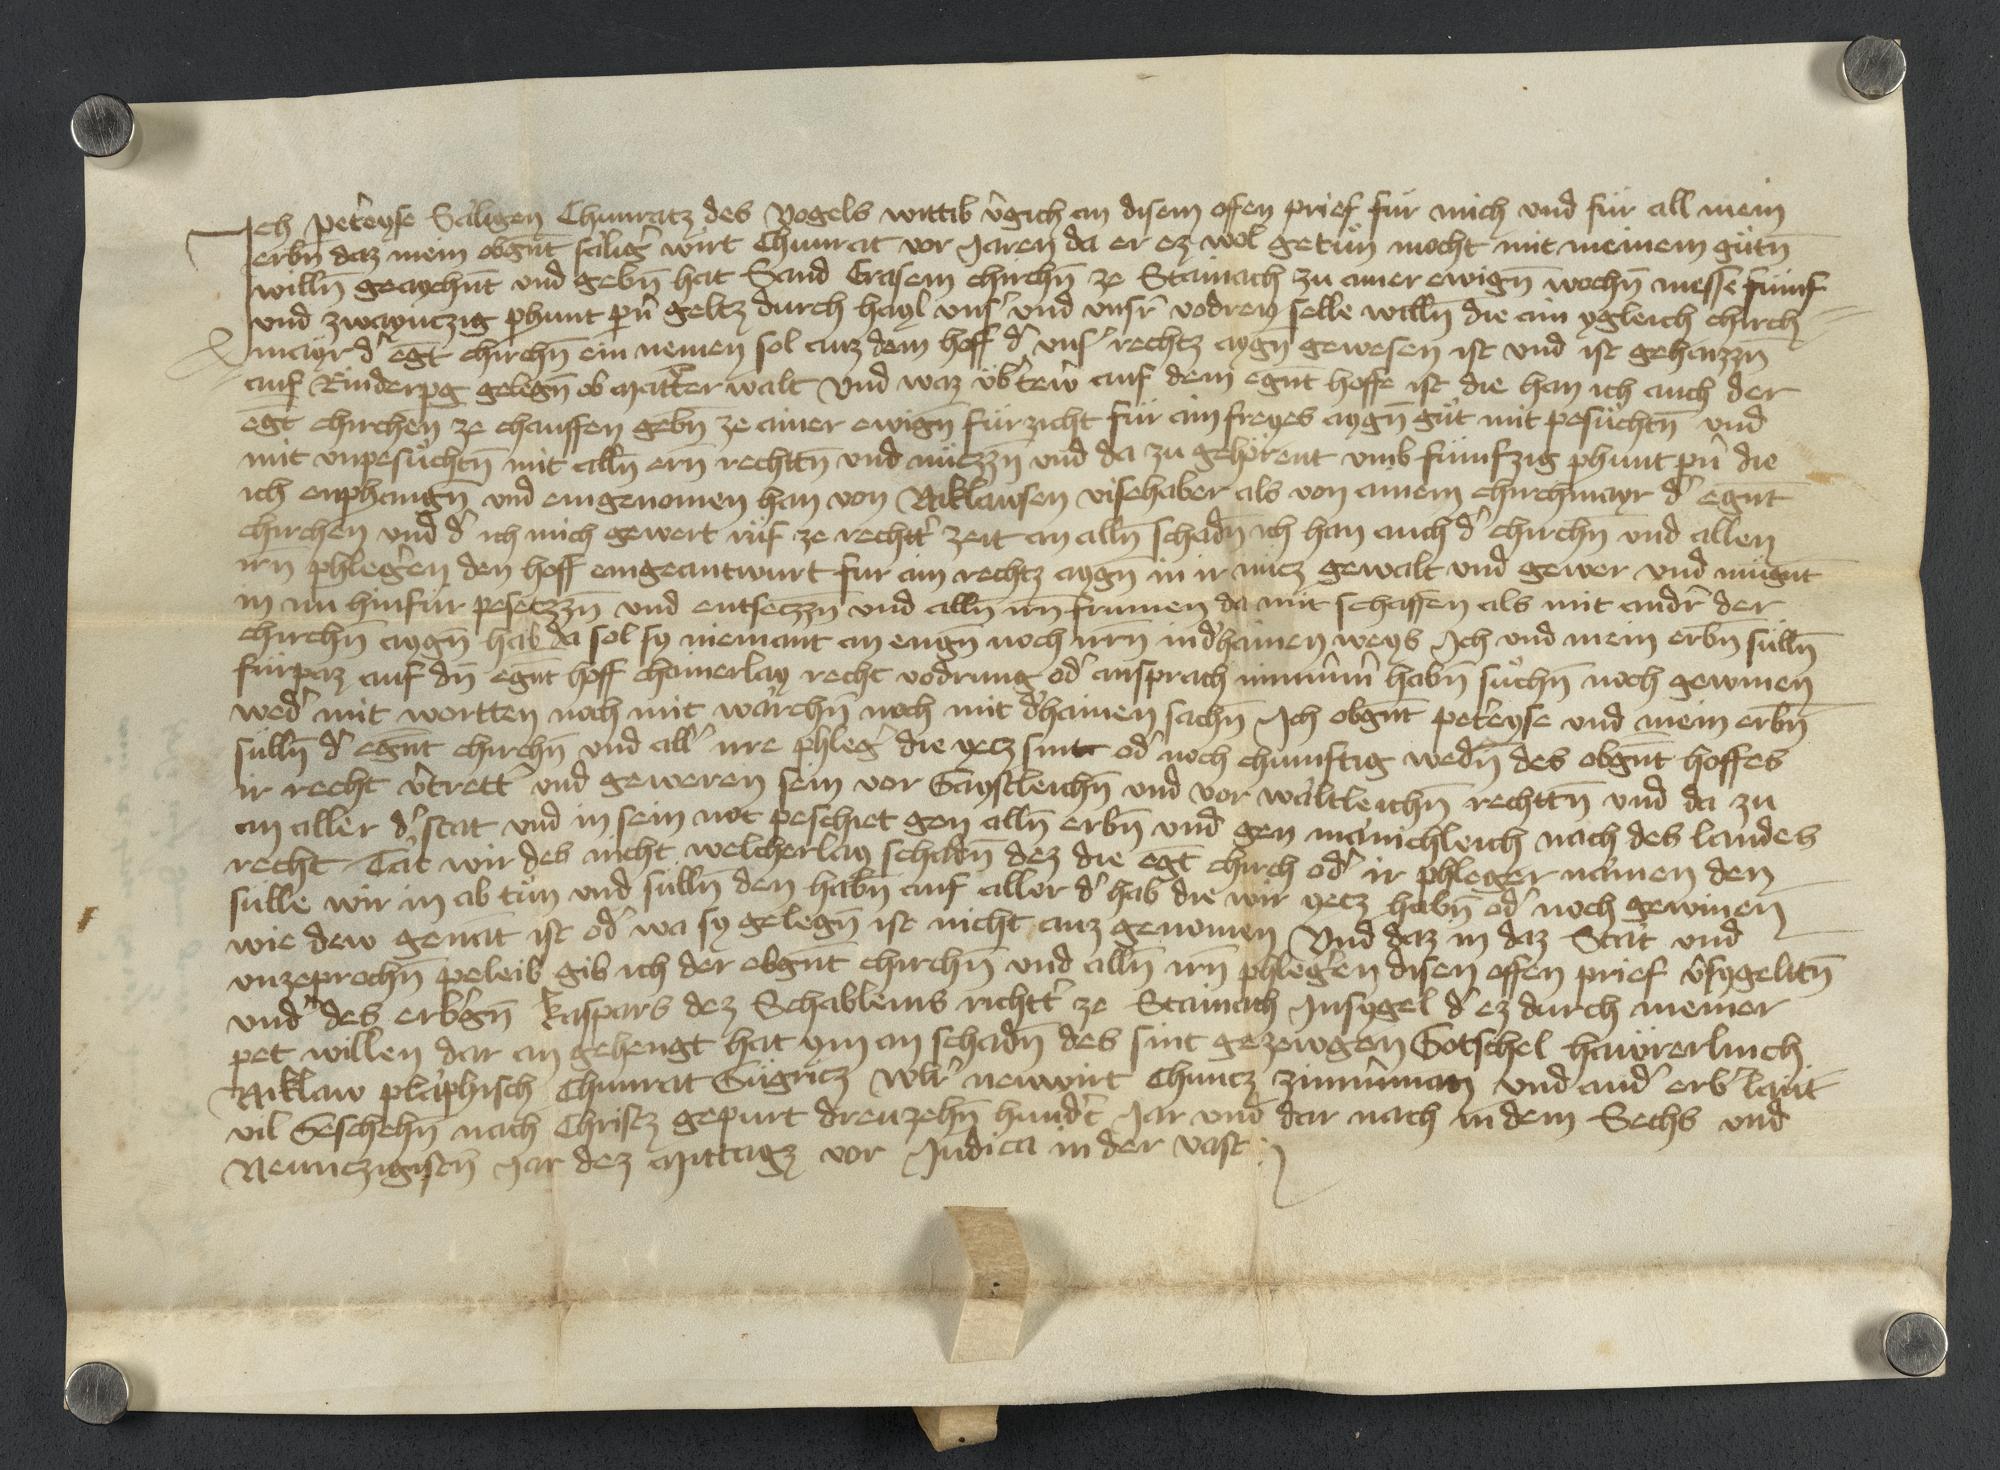 Ich petͤreyse Säligen Chunratz des Vogels wittib v̂gich an disem offen prief für mich und für all mein
erbn̄ daz mein obgn̄t sälig̾ wirt Chunrat vor Jaren da er ez wol getün mocht mit meinem gütn̄
willn̄ geaychn̄t und gebn̄ hat Sand Erasem chirchn̄ ze Stainach zu ainer ewign̄ wochn̄ messe fümf
und zwaynczig phunt pn̄ geltz durch hayl uns̾ und unsr̾ vodren selle willn̄ die ain ygleich chirch
mayr d̾ egt̄ chirchn̄ ein nemen sol auz dem hoff d̾ uns̾ rechtz aygn̄ gewesen ist und ist gehaizzn̄
auf Rinderpg gelegn̄ ob Matt̾er walt und waz üb̾tew̄ auf dem egn̄t hoffe ist die han ich auch der
egt̄ chirchen ze chauffen gebn̄ ze ainer ewign̄ fürzicht für ain freyes aygn̄ güt mit pesüchtn̄ und
mit unpesüchtn̄ mit alln̄ ern̄ rechttn̄ und nüczzn̄ und da zu gehörent umb fümfzig phunt pn̄ die
ich enphangn̄ und eingenomen han von Niklausen vischaber als von ainem chirchmayr d̾ egn̄t
chirchen und d̾ ich mich gewert rüf ze rechtt̾ zeit an alln̄ schadn̄ ich han auch d̾ chirchn̄ und allen
irn̄ phleg̾en den hoff eingeantwurt fur ain rechtz aygn̄ in ir nücz gewalt und gewer und mügn̄t
in nu hinfür pesetzzn̄ und entseczzn̄ und alln̄ irn̄ frumen da mit schaffen als mit andr̾ der
chirchn̄ aygn̄ hab da sol sy niemant an engn̄ noch irrn̄ in dhainen weys Ich und mein erbn̄ sülln̄
fürpaz auf dn̄ egn̄t hoff chainerlay recht vodrung od̾ ansprach nimm̄m̄ habn̄ süchn̄ noch gewinen
wed̾ mit wortten noch mit wärchn̄ noch mit dhainen sachn̄ Ich obgn̄t pet̾reyse und mein erbn̄
sülln̄ d̾ egn̄t chirchn̄ und all̾ irre phleg̾ die yecz sint od̾ noch chümftig wedn̄ des obgn̄t hoffes
ir recht v̾trett̾ und geweren sein vor Gaystleichn̄ und vor wältleichn̄ rechttn̄ und da zu
an aller d̾ stat und in sein not peschiet gen alln̄ erbn̄ und gen mänichleich nach des landes
recht Tät wir des nicht welcherlay schadn̄ dez die egt̄ chirch od̾ ir phleger nämen den
sülle wir in ab tün und sülln̄ den habn̄ auf aller d̾ hab die wir yecz habn̄ od̾ noch gewinen
wie dew genāt ist od̾ wa sy gelegn̄ ist nicht auz genomen Und daz in daz Stät und
unzeprochn̄ peleib gib ich der obgn̄t chirchn̄ und alln̄ irn̄ phleg̾en disen offen prief v̾sygeltn̄
und̾ des erb̾gn̄ Kaspars dez Schableins richtt̾ ze Stainach Insygel d̾ ez durch meiner
pet willen dar an gehengt hat ym an schadn̄ des sint gezewgen Götschel
Niklaw Chunrat Chuncz und and̾ erb̾ läut
vil Geschehn̄ nach Christz gepurt dreuzehn̄ hundt̾ Jar und dar nach in dem Sechs und
Neunczigistn̄ Jar dez Mittagz vor Judica in der vast